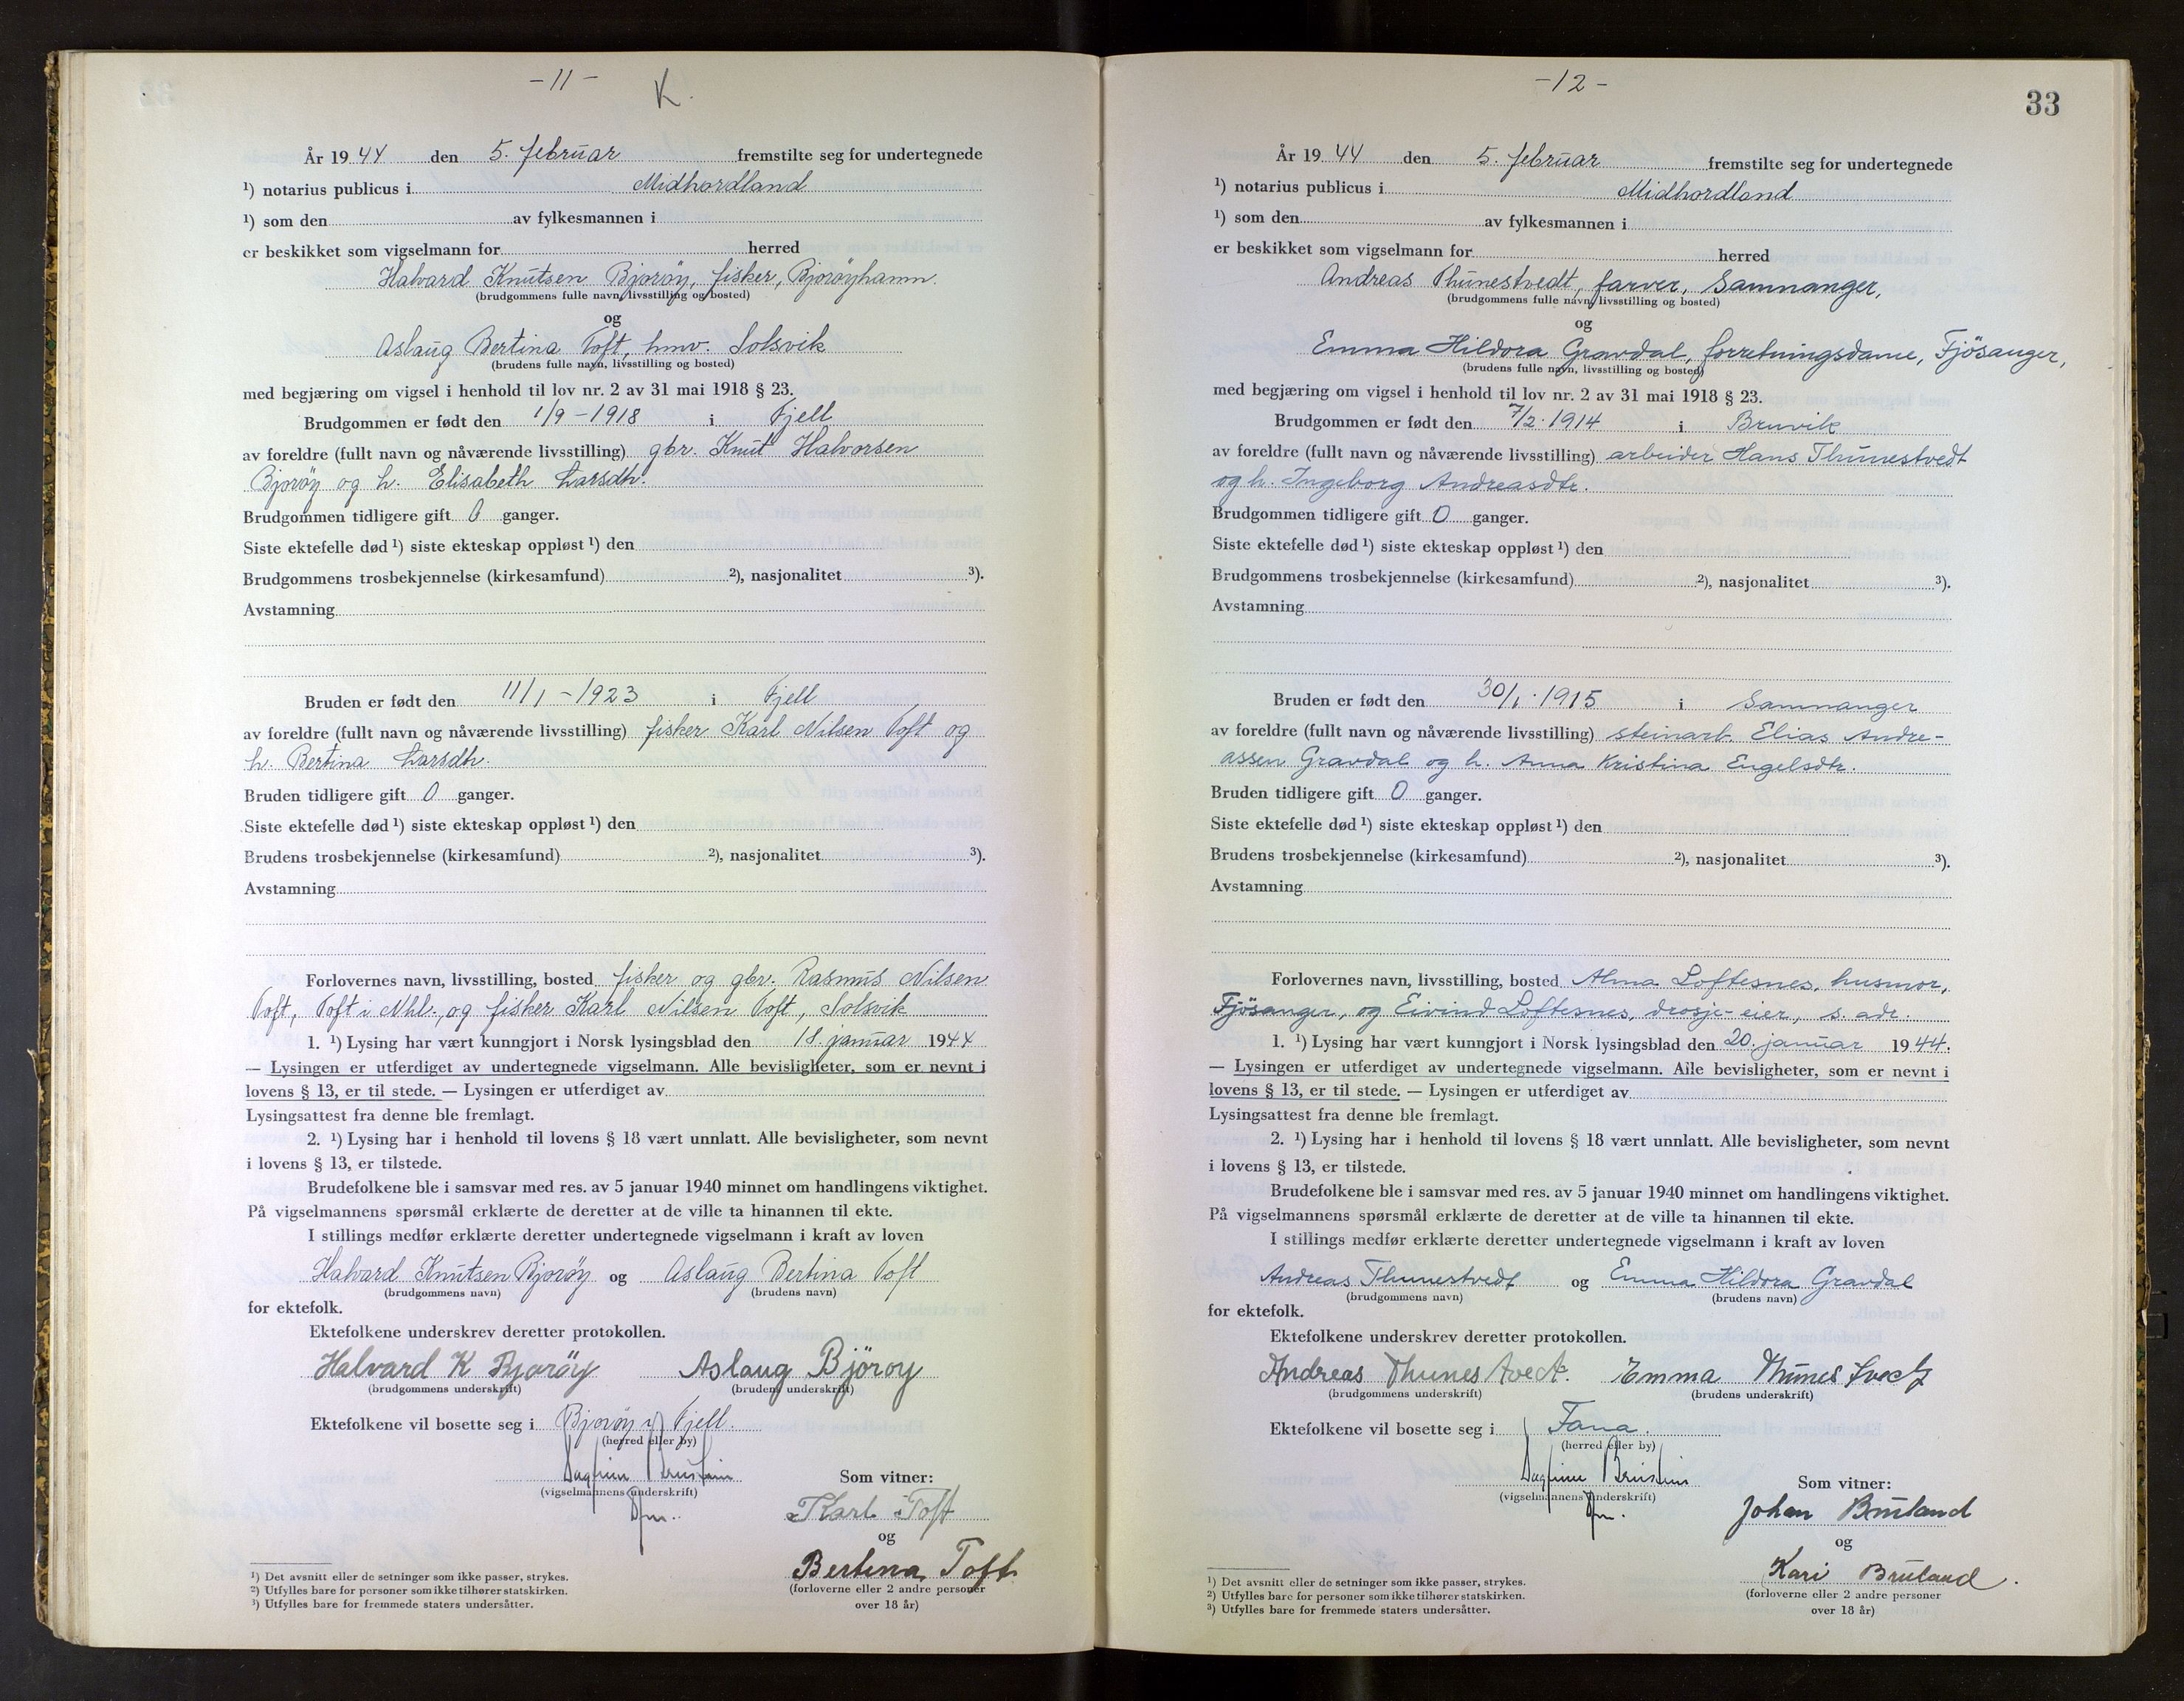 -11-
K.
År 1944 den 5. februar fremstilte seg for undertegnede
¹) notarius publicus i Midhordland
¹) som den av fylkesmannen i
er beskikket som vigselmann for herred
Halvard Knutsen Bjorøy, fisker, Bjorøyhamn.
(brudgommens fulle navn, livsstilling og bosted)
og
Aslaug Bertina Toft, hmv. Solsvik
(brudens fulle navn, livsstilling og bosted)
med begjæring om vigsel i henhold til lov nr. 2 av 31 mai 1918 § 23.
Brudgommen er født den 1/9-1918 i Fjell
av foreldre (fullt navn og nåværende livsstilling) gbr. Knut Halvorsen
Bjorøy og h. Elisabeth Larsdtr.
Brudgommen tidligere gift 0 ganger.
Siste ektefelle død ¹) siste ekteskap oppløst ¹) den
Brudgommens trosbekjennelse (kirkesamfund) ²), nasjonalitet ³).
Avstamning
Bruden er født den 11/1-1923 i Fjell
av foreldre (fullt navn og nåværende livsstilling) fisker Karl Nilsen Toft og
h. Bertina Larsdtr.
Bruden tidligere gift 0 ganger.
Siste ektefelle død ¹) siste ekteskap oppløst ¹) den
Brudens trosbekjennelse (kirkesamfund) ²), nasjonalitet ³).
Avstamning
Forlovernes navn, livsstilling, bosted fisker og gbr. Rasmus Nilsen
Toft, Toft i Nhl., og fisker Karl Nilsen Toft, Solsvik
1. ¹) Lysing har vært kunngjort i Norsk lysingsblad den 18. januar 1944
— Lysingen er utferdiget av undertegnede vigselmann. Alle bevisligheter, som er nevnt i
lovens § 13, er til stede. — Lysingen er utferdiget av
Lysingsattest fra denne ble fremlagt.
2. ¹) Lysing har i henhold til lovens § 18 vært unnlatt. Alle bevisligheter, som nevnt
i lovens § 13, er tilstede.
Brudefolkene ble i samsvar med res. av 5 januar 1940 minnet om handlingens viktighet.
På vigselmannens spørsmål erklærte de deretter at de ville ta hinannen til ekte.
I stillings medfør erklærte deretter undertegnede vigselmann i kraft av loven
Halvard Knutsen Bjorøy og Aslaug Bertina Toft
(brudgommens navn) (brudens navn)
for ektefolk.
Ektefolkene underskrev deretter protokollen.
Halvard K Bjorøy Aslaug Björoy
(brudgommens underskrift) (brudens underskrift)
Ektefolkene vil bosette seg i Bjorøy i Fjell.
(herred eller by)
(vigselmannens underskrift)
Som vitner:
Karl Toft
og
Bertina Toft
(forloverne eller 2 andre personer
over 18 år)
¹) Det avsnitt eller de setninger som ikke passer, strykes.
²) Utfylles bare for personer som ikke tilhører statskirken.
³) Utfylles bare for fremmede staters undersåtter.
-12-
33
År 1944 den 5. februar fremstilte seg for undertegnede
¹) notarius publicus i Midhordland
¹) som den av fylkesmannen i
er beskikket som vigselmann for herred
Andreas Thunestvedt, farver, Samnanger,
(brudgommens fulle navn, livsstilling og bosted)
og
Emma Hildora Gravdal, forretningsdame, Fjösanger,
(brudens fulle navn, livsstilling og bosted)
med begjæring om vigsel i henhold til lov nr. 2 av 31 mai 1918 § 23.
Brudgommen er født den 7/2-1914 i Bruvik
av foreldre (fullt navn og nåværende livsstilling) arbeider Hans Thunestvedt
og h. Ingeborg Andreasdtr.
Brudgommen tidligere gift 0 ganger.
Siste ektefelle død ¹) siste ekteskap oppløst ¹) den
Brudgommens trosbekjennelse (kirkesamfund) ²), nasjonalitet ³).
Avstamning
Bruden er født den 30/1-1915 i Samnanger
av foreldre (fullt navn og nåværende livsstilling) steinarb. Elias Andre-
assen Gravdal og h. Anna Kristina Engelsdtr.
Bruden tidligere gift 0 ganger.
Siste ektefelle død ¹) siste ekteskap oppløst ¹) den
Brudens trosbekjennelse (kirkesamfund) ²), nasjonalitet ³).
Avstamning
Forlovernes navn, livsstilling, bosted Alma Loftesnes, husmor,
Fjösanger, og Eivind Loftesnes, drosje-eier, s. adr.
1. ¹) Lysing har vært kunngjort i Norsk lysingsblad den 20. januar 1944.
— Lysingen er utferdiget av undertegnede vigselmann. Alle bevisligheter, som er nevnt i
lovens § 13, er til stede. — Lysingen er utferdiget av
Lysingsattest fra denne ble fremlagt.
2. ¹) Lysing har i henhold til lovens § 18 vært unnlatt. Alle bevisligheter, som nevnt
i lovens § 13, er tilstede.
Brudefolkene ble i samsvar med res. av 5 januar 1940 minnet om handlingens viktighet.
På vigselmannens spørsmål erklærte de deretter at de ville ta hinannen til ekte.
I stillings medfør erklærte deretter undertegnede vigselmann i kraft av loven
Andreas Thunestvedt og Emma Hildora Gravdal
(brudgommens navn) (brudens navn)
for ektefolk.
Ektefolkene underskrev deretter protokollen.
Andreas Thunestvedt. Emma Thunestvedt
(brudgommens underskrift) (brudens underskrift)
Ektefolkene vil bosette seg i Fana.
(herred eller by)
(vigselmannens underskrift)
Som vitner:
Johan Bruland
og
Kari Bruland.
(forloverne eller 2 andre personer
over 18 år)
¹) Det avsnitt eller de setninger som ikke passer, strykes.
²) Utfylles bare for personer som ikke tilhører statskirken.
³) Utfylles bare for fremmede staters undersåtter.